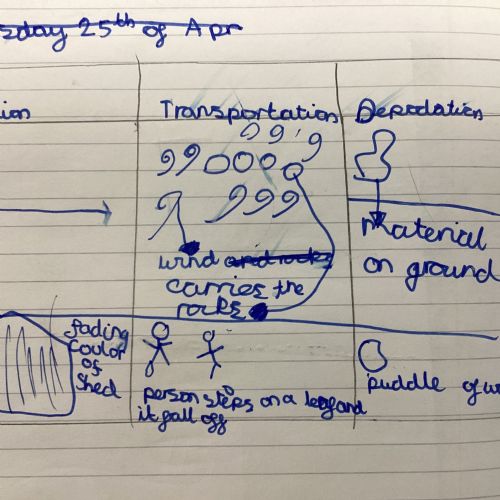 sday 25th of Apr
ion
Transportation
Deprodation
wind and rocks
carries the
rocks
Material
on ground
fading
Coulor
of
Shed
person steps on a leg and
it fall off
puddle of w